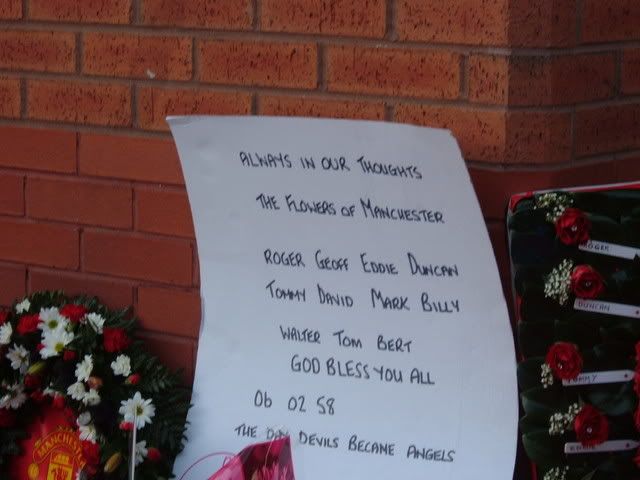 ALWAYS IN OUR THOUGHTS
THE FLOWERS OF MANCHESTER
ROGER GEOFF EDDIE DUNCAN
TOMMY DAVID MARK BILLY
WALTER TOM BERT
GOD BLESS YOU ALL
06 02 58
THE DAY DEVILS BECAME ANGELS
ROGER
DUNCAN
TOMMY
MANCHESTER